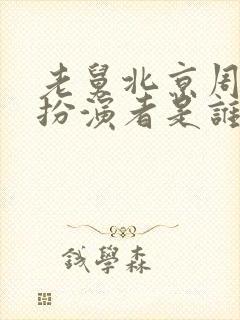 老舅北京周
扮演者是誰
錢學森